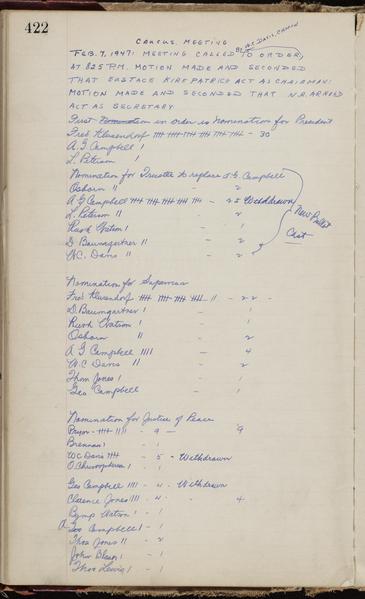 422
CAUCUS MEETING
FEB. 7, 1947: MEETING CALLED TO ORDER, BY W.C. DAVIS, CHMAN
AT 8 25 P.M. MOTION MADE AND SECONDED
THAT EASTACE KIRKPATRICK ACT AS CHAIRMAN:
MOTION MADE AND SECONDED THAT N.R. ARNOLD
ACT AS SECRETARY
First in order is nomination for President
Fred Klusendorf 𝍸 𝍸 𝍸 𝍸 𝍸 𝍸 - 30
A. G. Campbell /
L. Peterson /
Nomination for Trustee to replace A G. Campbell
Osborn // - 2
A G Campbell 𝍸 𝍸 𝍸 𝍸 𝍸 - 25 Withdrawn
L. Peterson // - 2
Rush Watson / - 1
D. Baumgartner // - 2
W.C. Davis // - 2
New Ballot
Cast
Nomination for
Fred Klusendorf 𝍸 𝍸 𝍸 𝍸 // - 22 -
D. Baumgartner / - 1
Rush Watson / - 1
Osborn // - 2
A G Campbell //// - 4
W.C Davis // - 2
Thom Jones / - 1
Geo Campbell - 1
Nomination for Justice of Peace
𝍸 //// - 9 - 9
Brennan / - 1
W C Davis 𝍸 - 5 - Withdrawn
/ - 1
Geo Campbell //// - 4 - Withdrawn
Clarence Jones //// - 4 - 4
Watson / - 1
A Geo Campbell / - 1
Thos Jones // - 2
John / - 1
Thos Lewis / - 1